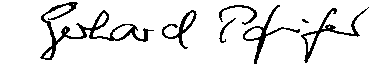 Gerhard Pfeifer